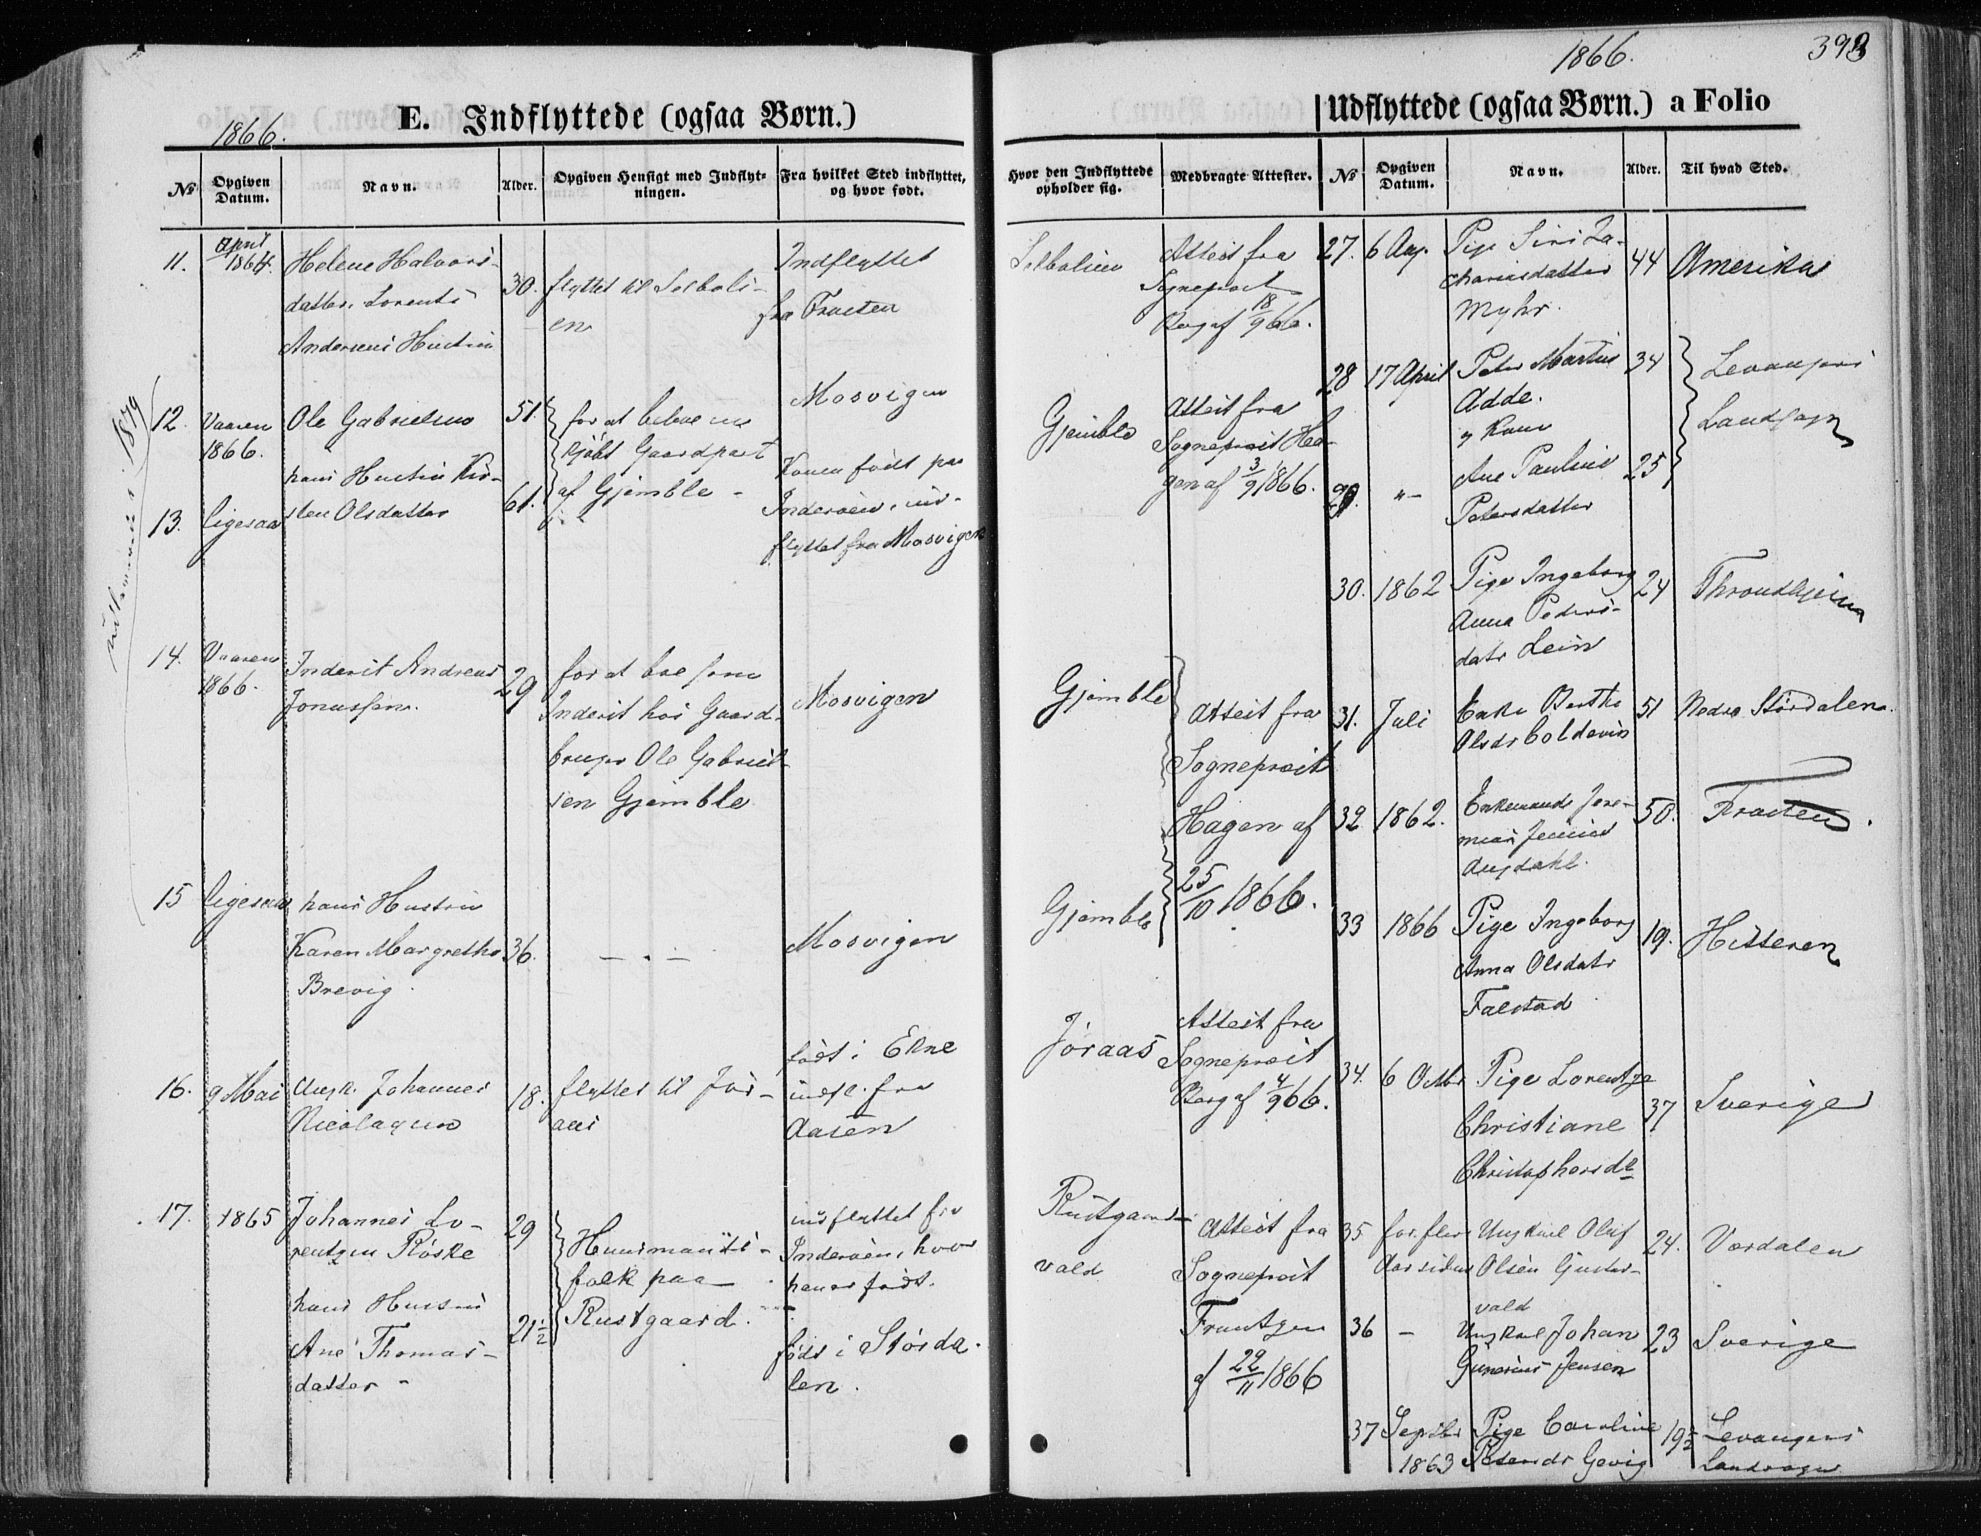 1866.
393
E. Indflyttede (ogsaa Børn.)
Udflyttede (ogsaa Børn.) a Folio
1866.
No
Opgiven Datum.
Navn.
Alder.
Opgiven Hensigt med Indflyt-
ningen.
Fra hvilket Sted indflyttet,
og hvor født.
Hvor den Indflyttede
opholder sig.
Medbragte Attester.
No
Opgiven
Datum.
Navn.
Alder.
Til hvad Sted.
11.
April
1864
Helene Halvors-
datter, Lorents
Andersens Hustru
30.
flyttet til
en
Indflyttet
fra Frosten
Attest fra
Sogneprest
Berg af 18/9 66.
1879
12.
Vaaren
1866.
Ole Gabrielsen
51.
for at beboe en
kjøbt Gaardpart
af Gjemble -
Mosvigen
Gjemble
Attest fra
Sogneprest Ha-
gen af 3/9 1866.
13.
ligesaa
hans Hustru Kir-
sten Olsdatter
61.
Konen født paa
Inderøen, ind-
flyttet fra Mosvigen
14.
Vaaren
1866.
Inderst Andreas
Jonassen.
29
for at boe som
Inderst hos Gaard-
bruger Ole Gabriel-
sen Gjemble
Mosvigen
Gjemble
Attest fra
Sogneprest
Hagen af
25/10 1866.
15
ligesaa
hans Hustru
Karen Margrethe
Brevig
36.
- " -
Mosvigen
Gjemble
16.
9 Mai
Ungk. Johannes
Nicolaysen
18.
flyttet til Jør-
aas
født i Ekne
indfl. fra
Aasen
Jøraas
Attest fra
Sogneprest
Berg af 4/9 66.
17.
1865
Johannes Lo-
rentzen Røske
29
Huusmands-
folk paa
Rustgaard.
indflyttet fra
Inderøen, hvor
han er født.
Rustgaard-
vald
Attest fra
Sogneprest
Frantzen
af 29/11 1866
hans Hustru
Ane Thomas-
datter -
21 1/2
født i Størda-
len.
27.
6 Aug.
Pige Siri Za-
chariasdatter
Myhr.
44
Amerika
28
17 April
Peter Martin
Adde.
og Kone
34
Levangers
Landsogn
29.
" -
Ane Pauline
Petersdatter
25
30.
1862
Pige Ingeborg
Anna Peders-
datr Lein
24
Throndhjem
31.
Juli
Enke Berthe
Olsdr Coldevin
51
Nedre Størdalen.
32
1862.
Enkemand Jere-
mias Jenssen
Augdahl.
50.
Frosten.
33
1866
Pige Ingeborg
Anna Olsdatr
Falstad
19.
Hitteren
34.
6 Octbr
Pige Lorentze
Christiane
Christophersdr
37
Sverige
35
for flere
Aar siden
Ungkarl Oluf
Olsen Guster-
vald
24.
Værdalen
36
-
Ungkarl Johan
Gunerius Jensen
23
Sverige
37
Septbr
1863
Pige Caroline
Petersdr Gevig
19 1/2
Levangers
Landsogn